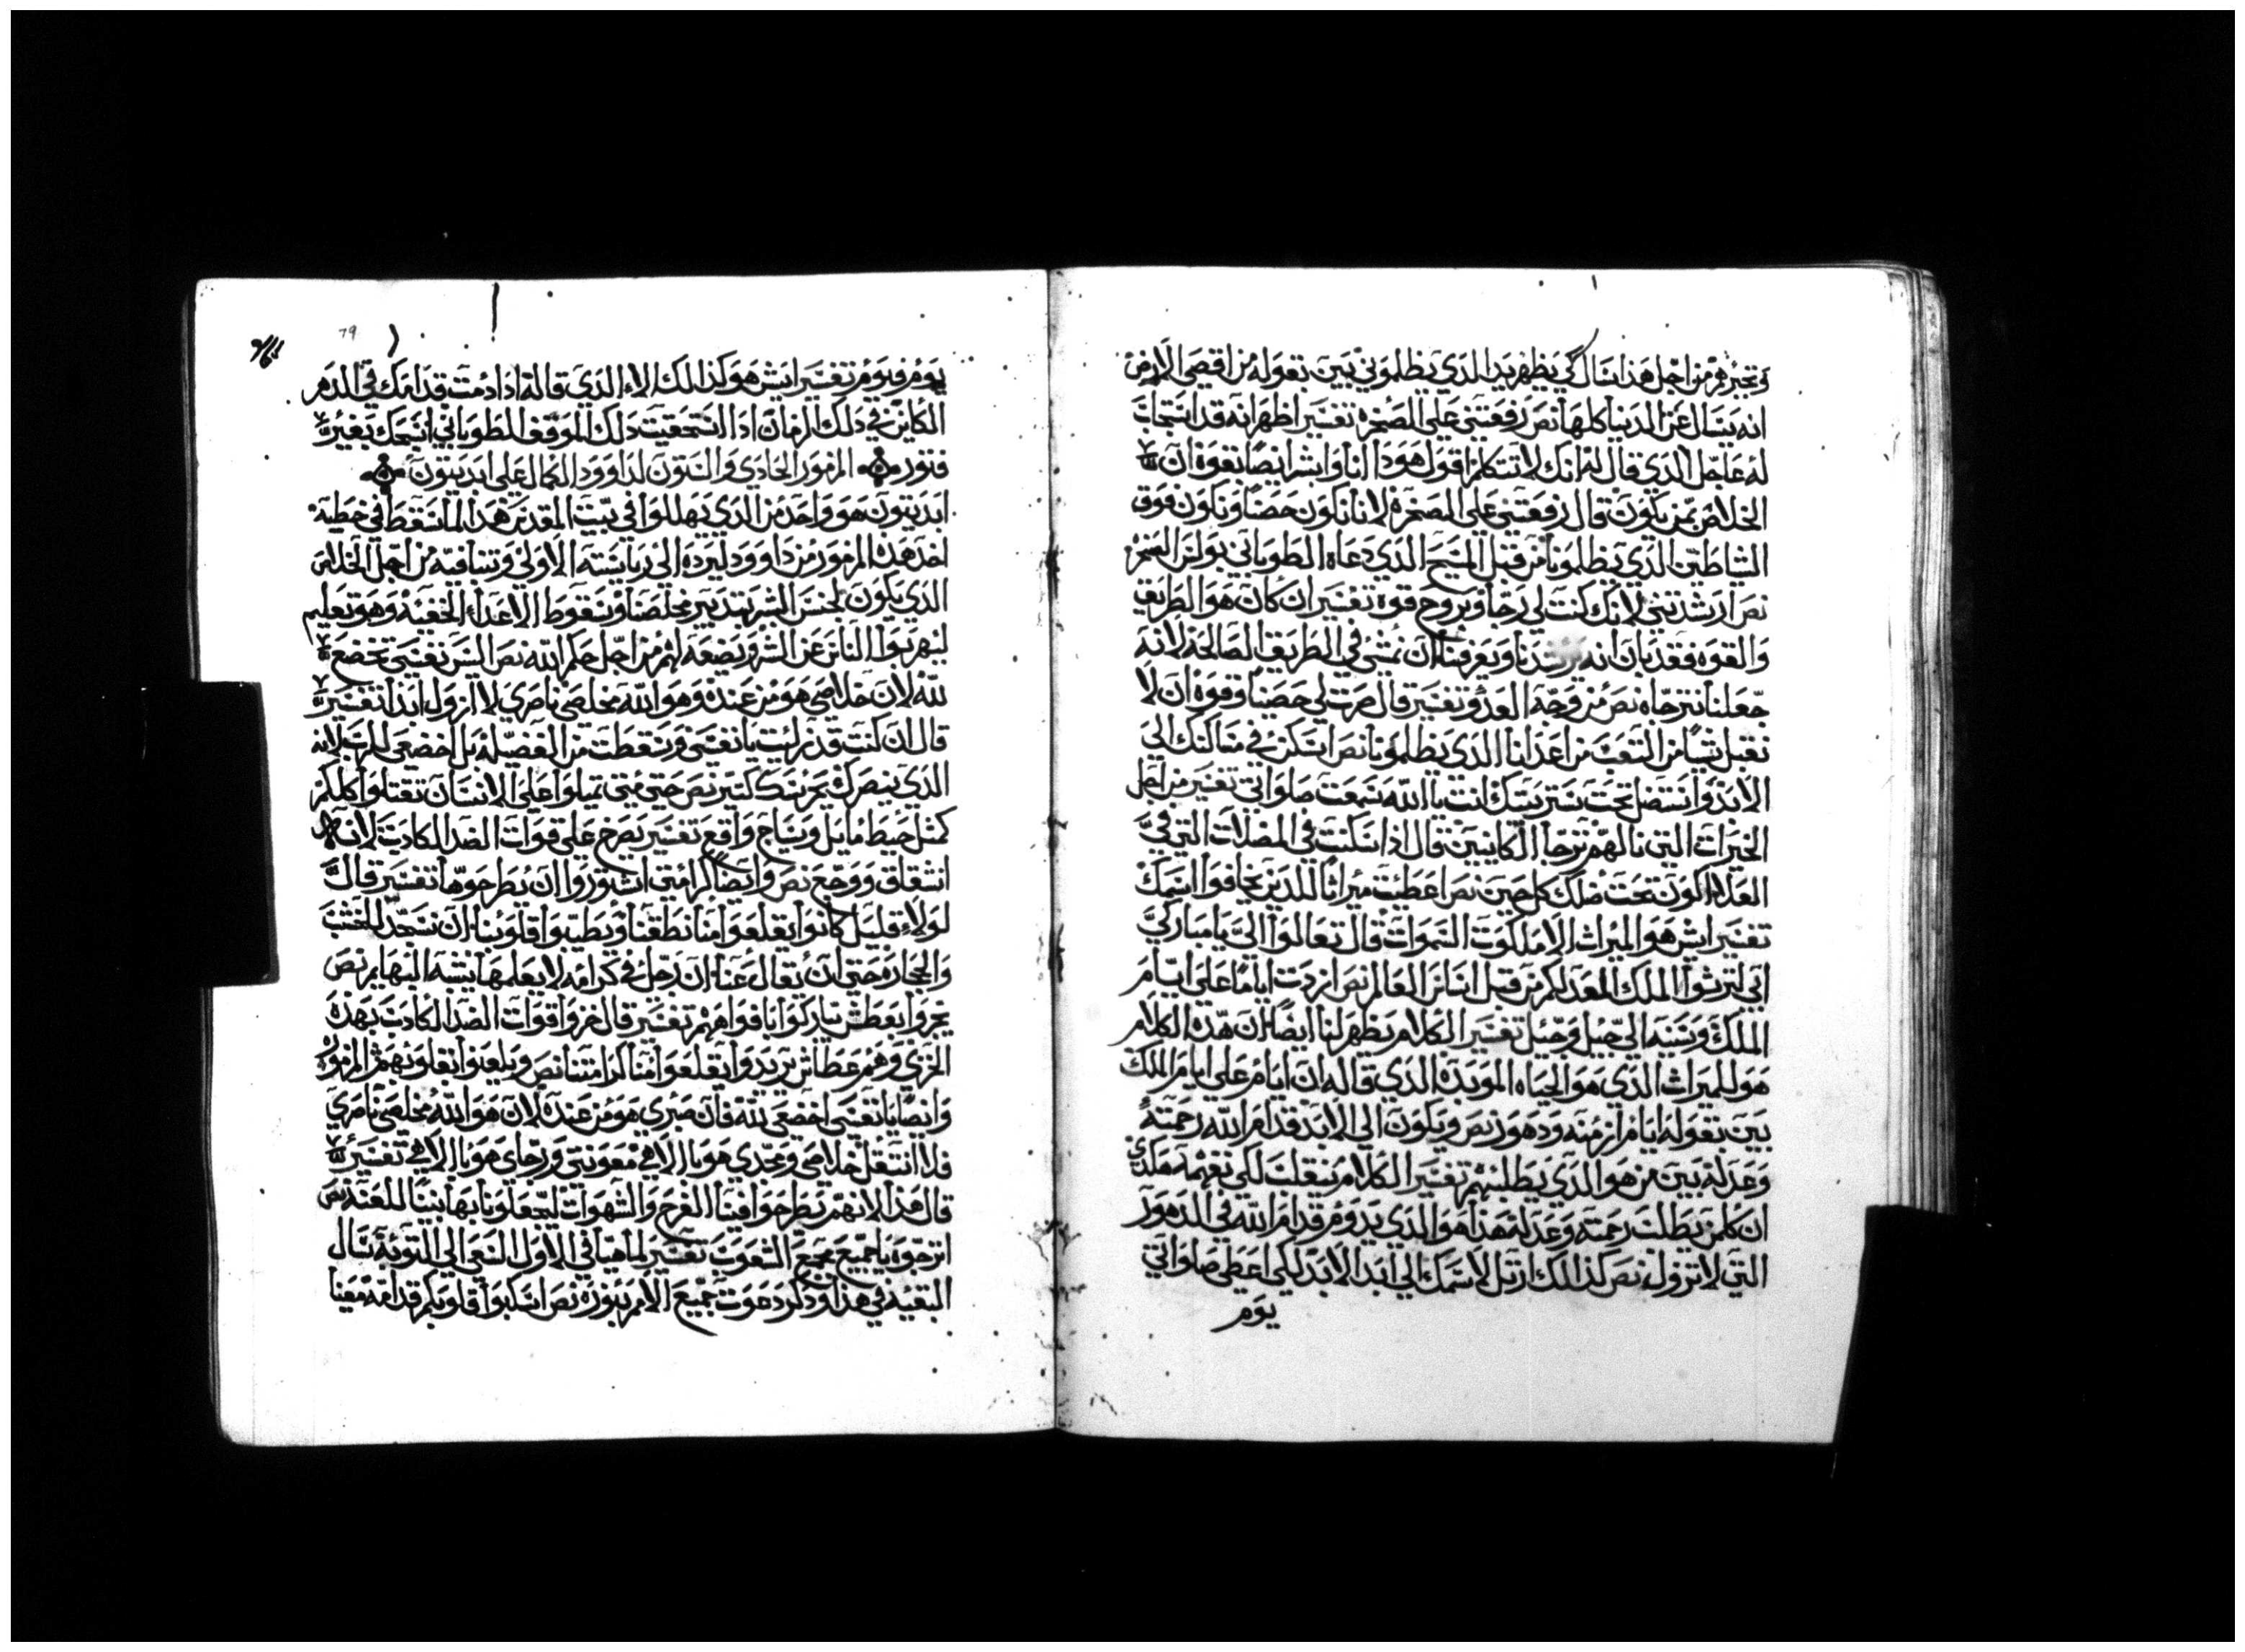 من اجل هذا سال كي يظهر يد الذي يظلموني بين بقوله من اقصى الارض
انه يسال عن الدنيا كلها نص رفعتني على الصخره تفسير اظهر انه قد استجاب
له عاجل الذي قال له انك لا تتكلم اقول هوذا انا وابشر ايضا بقوة ان
الخلاص بمن يكون قال رفعتني على الصخره لاننا نكون حصنا ونكون فوق
الشياطين الذي يظلمونا من قبل المسيح الذي دعاه الطوباني بولس الصخره
نص ارشدتني لانك كنت لي رجا وبروج قوة تفسير ان كان هو الطريق
والقوه فقد بان انه يرشدنا ويعرفنا ان نمشي في الطريق الصالحه لانه
جعلنا نترجاه نص من وجه العدو تفسير قال صرت لي حصنا وقوة ان لا
نقبل شيا من التعب من اعدانا الذي يظلمونا نص اسكن في مساكنك الى
الابد واستضل تحت ستر بيتك انت يا الله سمعت صلواتي تفسير من اجل
الخيرات التي نالهم ترجا الكايين قال اذا سكنت في المضلات التي في
العلا اكون تحت ضلك كل حين نص اعطيت ميراثا للذين يخافوا اسمك
تفسير ايش هو الميراث الا ملكوت السموات قال تعالوا الي يا مباركي
ابي لترثوا الملك المعد لكم من قبل انشا العالم نص ازدت اياما على ايام
الملك وسنيه الى جيل وجيل تفسير الكلام يظهر لنا ايضا ان هذه الكلام
هو للميراث الذي هو الحياه الموبده الذي قاله ان ايام على ايام الملك
بين بقوله ايام ازمنه ودهور نص ويكون الى الابد قدام الله رحمته
وعدله بين من هو الذي يطلبهم تفسير الكلام ينقلب لكي نفهمه هكذي
ان كلمن يطلب رحمته وعدله هذا هو الذي يدوم قدام الله في الدهور
التي لا تزول نص كذالك ارتل لاسمك الى ابد الابد لكي اعطي صلواتي
يوم
يوم فيوم تفسير ايش هو كذالك الا الذي قاله اذا دمت قدامك في الدهر
الكاين في ذلك الزمان اذا استحقيت ذلك الموقف الطوباني اسبحك بغير
فتور المزمور الحادي والستون لداوود الكمال على ابديتون
ابديتون هو واحد من الذي يهللوا في بيت المقدس هذا لما سقط في خطيه
اخذ هذه المزمور من داوود ليرده الى رياسته الاولى وتسافيه من اجل الخلاص
الذي يكون لجنس البشر بتدبير مخلصنا وسقوط الاعداء الخفيه وهو تعليم
ليهربوا الناس عن الشر وبضعة اثم من اجل حكم الله نص اليس نفسي تخضع
لله لان خلاصي هو من عنده وهو الله مخلصي ناصري لا ازول ابدا تفسير
قال ان كنت قد زليت يا نفسي وسقطت من الفضيله بل اخضعي للرب لانه
الذي ينصرك يمرسك كتير نص حتى متى تميلوا على الانسان تقتلوا كلكم
كمثل حيط مايل وسياج واقع تفسير يصرخ على قوات الضد الكاذب لانه
انشقاق ووجع نص وايضا كرامتي اشتوروا ان يطرحوها تفسير قال
لولا قليل كانوا يقلعوا منا نطقنا ويطيبوا قلوبنا ان نسجد للخشب
والحجاره حتى ان يقال عنا ان رجل في كرامه لا يعلمها يشبه البهايم نص
يجروا بعطش يباركوا بافواههم تفسير قال خزوا قوات الضد الكاذب بهذه
الخزي وهم عطاش يريدوا يقلعوا منا كرامتنا نص ويلعنوا بقلوبهم المزمور
وايضا يا نفسي اخضعي لله فان صبري هو من عنده لان هو الله مخلصي ناصري
فلا انتقل خلاصي ومجدي هو يا الاهي معونتي ورجاي هو يا الاهي تفسير
قال هذا لانهم يطرحوا فينا الفرح والشهوات ليجعلونا بها بيتا للعنه نص
اترجوه يا جميع مجمع الشعوب تفسير لما هيا في الاول النعي الى التوبة سال
البقيه في هذا وذكر دعوت جميع الامم بنوره نص اسكبوا قلوبكم قدامه معينا
79